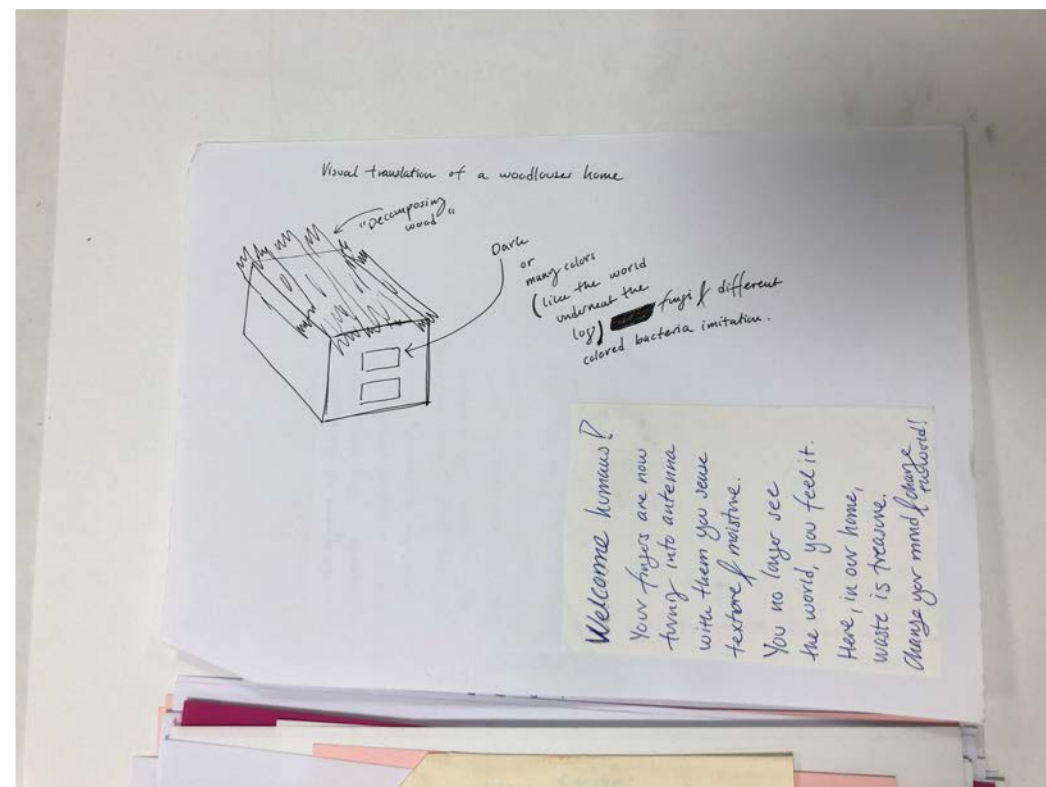 Visual translation of a woodlouses home
"Decomposing
wood"
Dark
or
many colors
(like the world
underneat the
log) fungi & different
colored bacteria imitation.
Welcome humans!
Your fingers are now
turning into antenna
with them you sense
texture & moisture.
You no longer see
the world, you feel it.
Here, in our home,
waste is treasure.
Change your mind & change